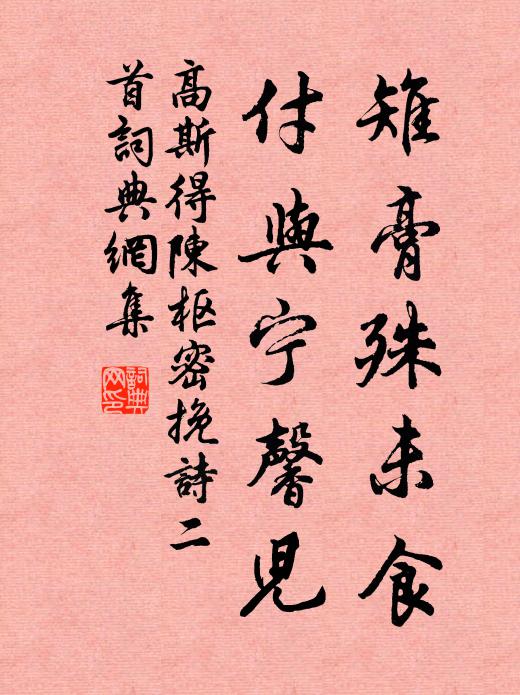 雉膏殊未食
付與宁馨児
高斯得陳枢密挽詩二
首詞典網集
詞典
网印